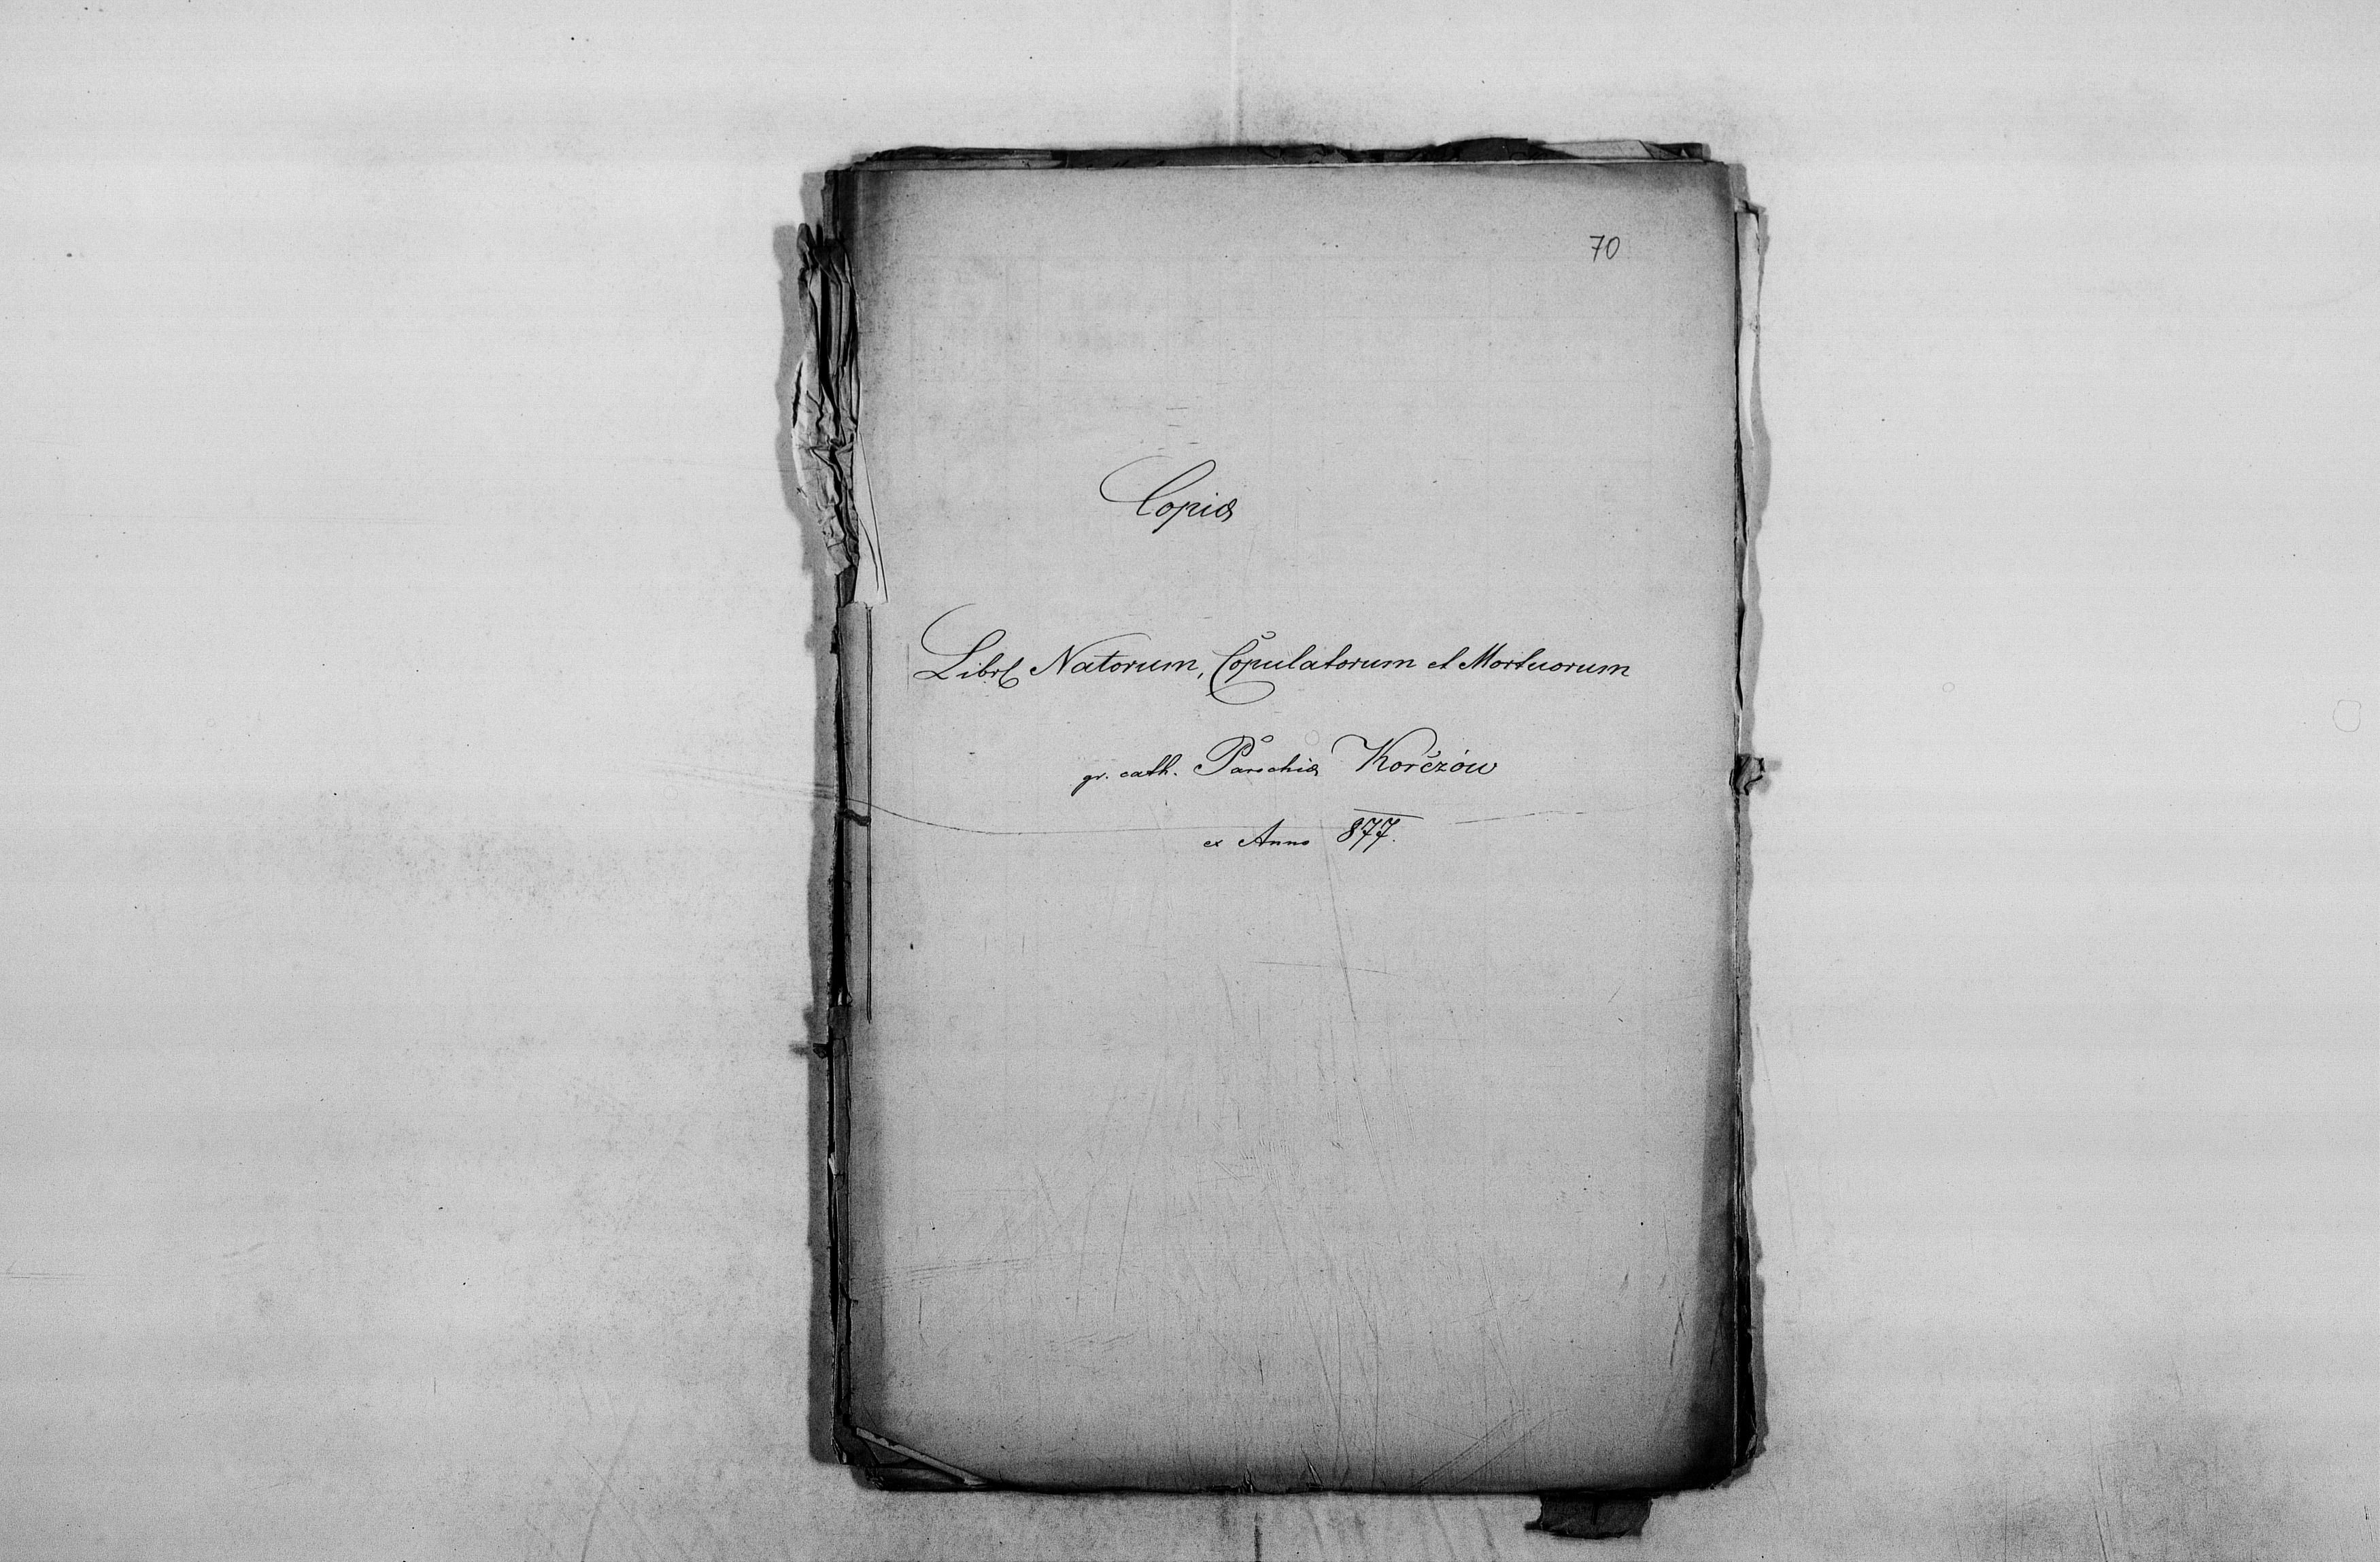 70
Copia
Libri Natorum, Copulatorum et Mortuorum
gr. cath. Parochiæ Korčzów
ex Anno 877.